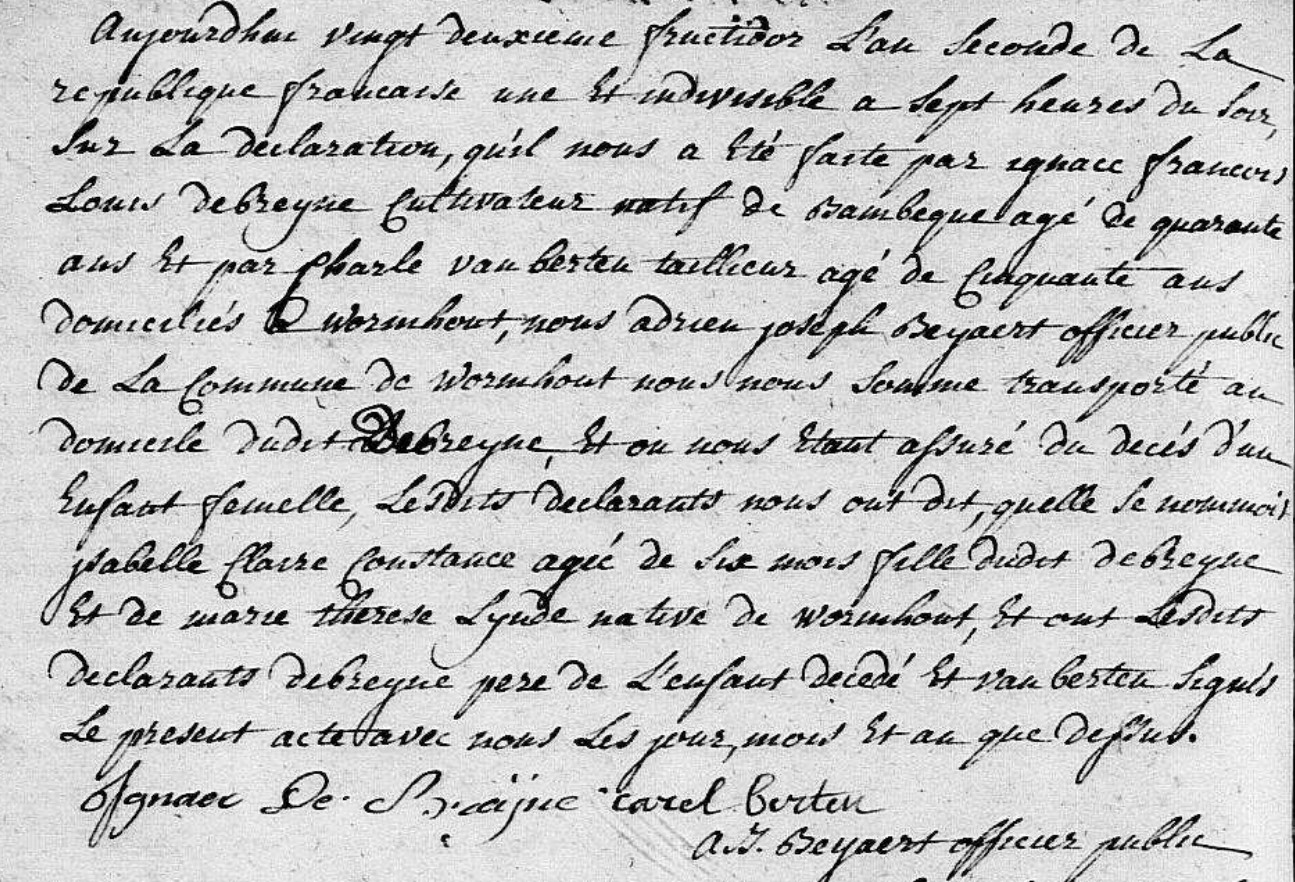 Aujourdhui vingt deuxieme fructidor L'an Seconde de La
republique francaise une Et indivisible a Sept heures du Soir,
Sur La declaration, qu'il nous a Eté faite par ignace francois
Louis deBreyne Cultivateur natif de Bambeque agé de quarante
ans Et par Charle vanberten taillieur agé de Cinquante ans
domiciliés a wormhout, nous adrien joseph Beyaert officier public
de La Commune de wormhout nous nous Somme transporté au
domicile dudit DeBreyne, Et ou nous Etant assuré du decés d'un
Enfant femelle, Lesdits declarants nous ont dit, quelle Se nommoit
jsabelle Claire Constance agée de Six mois fille dudit deBreyne
Et de marie therese Lynde native de wormhout, Et ont Lesdits
declarants debreyne pere de L'enfant decedé Et vanberten Signés
Le present acte avec nous Les jour, mois Et an que dessus.
Ignace De Breijne carel berten
A.J. Beyaert officier public